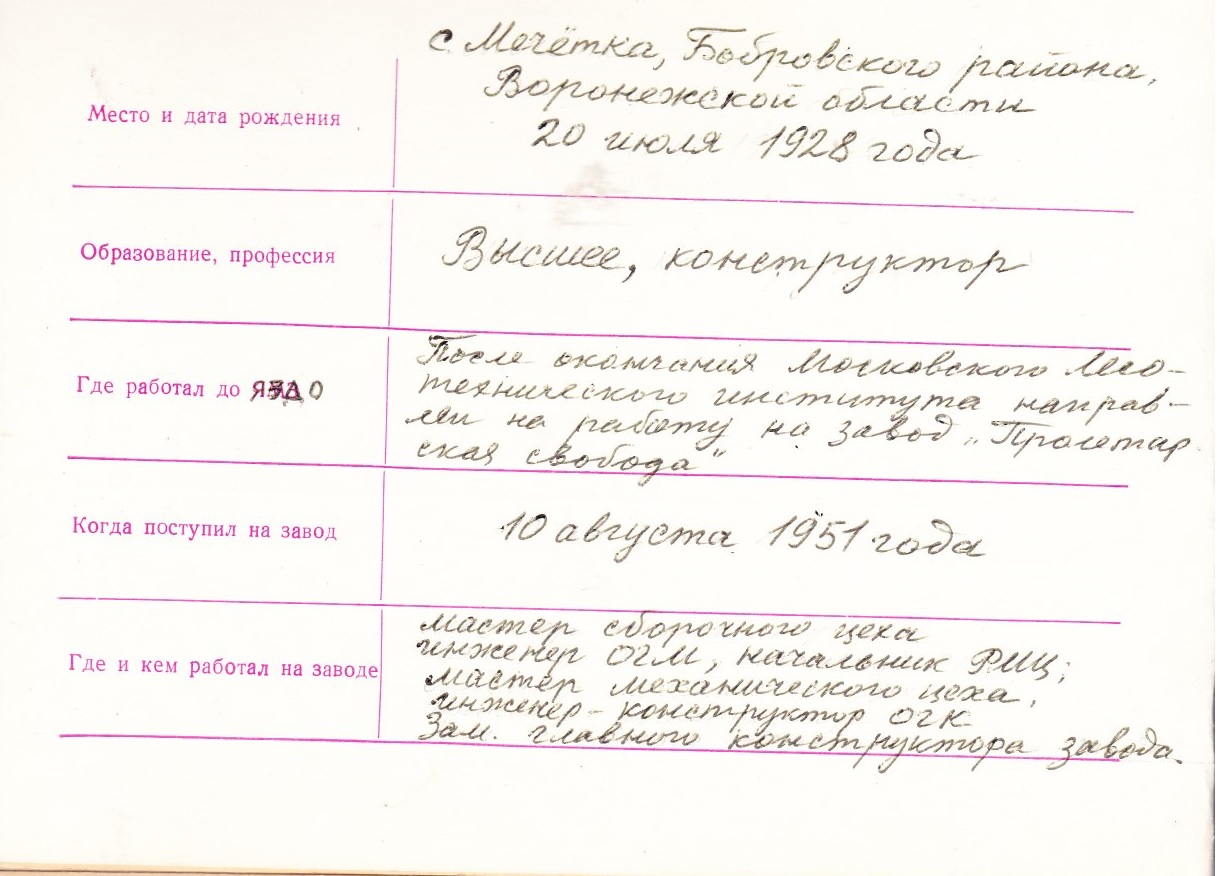 с Мечётка, Бобровского района,
Воронежской области
20 июля 1928 года
Место и дата рождения
Образование, профессия
Высшее, конструктор
Где работал до
После окончания Московского Лесо-
технического института направ-
лен на работу на завод „Пролетар
ская свобода"
Когда поступил на завод
10 августа 1951 года
Где и кем работал на заводе
мастер сборочного цеха
инженер ОГМ, начальник РМЦ;
мастер механического цеха,
инженер-конструктор ОГК
Зам. главного конструктора завода.